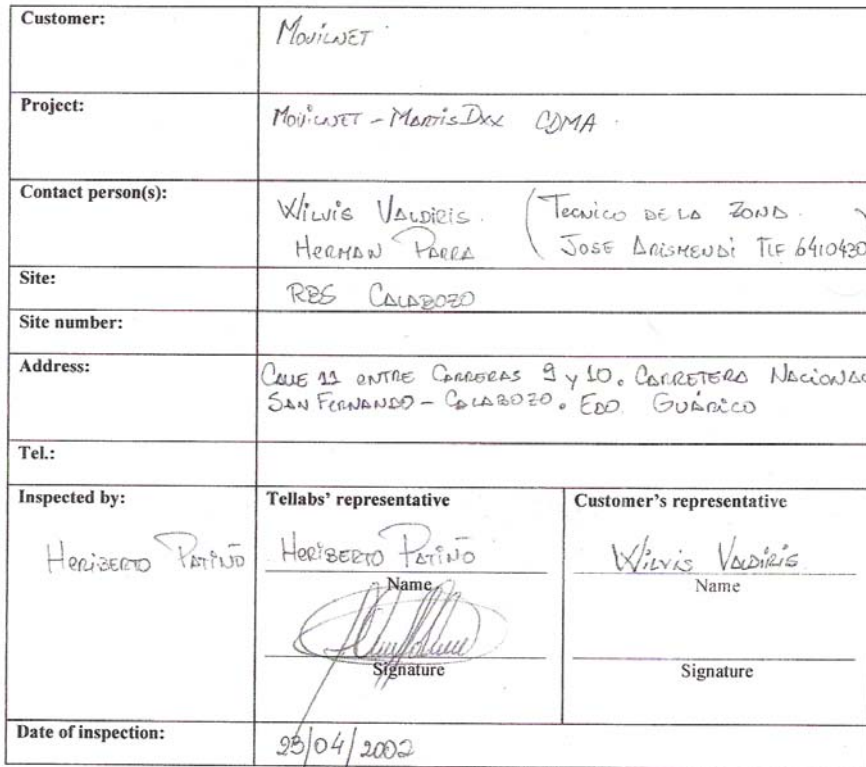 Customer: Movilnet
Project: Movilnet - Martis Dxx CDMA
Contact person(s): Wilvis Valdiris. (Tecnico de la Zona.
Herman Parra Jose Arismendi Tlf 6410430
Site: RBS Calabozo
Site number:
Address: Calle 11 entre Carreras 9 y 10. Carretera Nacional
San Fernando - Calabozo. Edo. Guárico
Tel.:
Inspected by: Heriberto Patiño
Tellabs' representative
Heriberto Patiño
Name
Signature
Customer's representative
Wilvis Valdiris
Name
Signature
Date of inspection: /04/2002